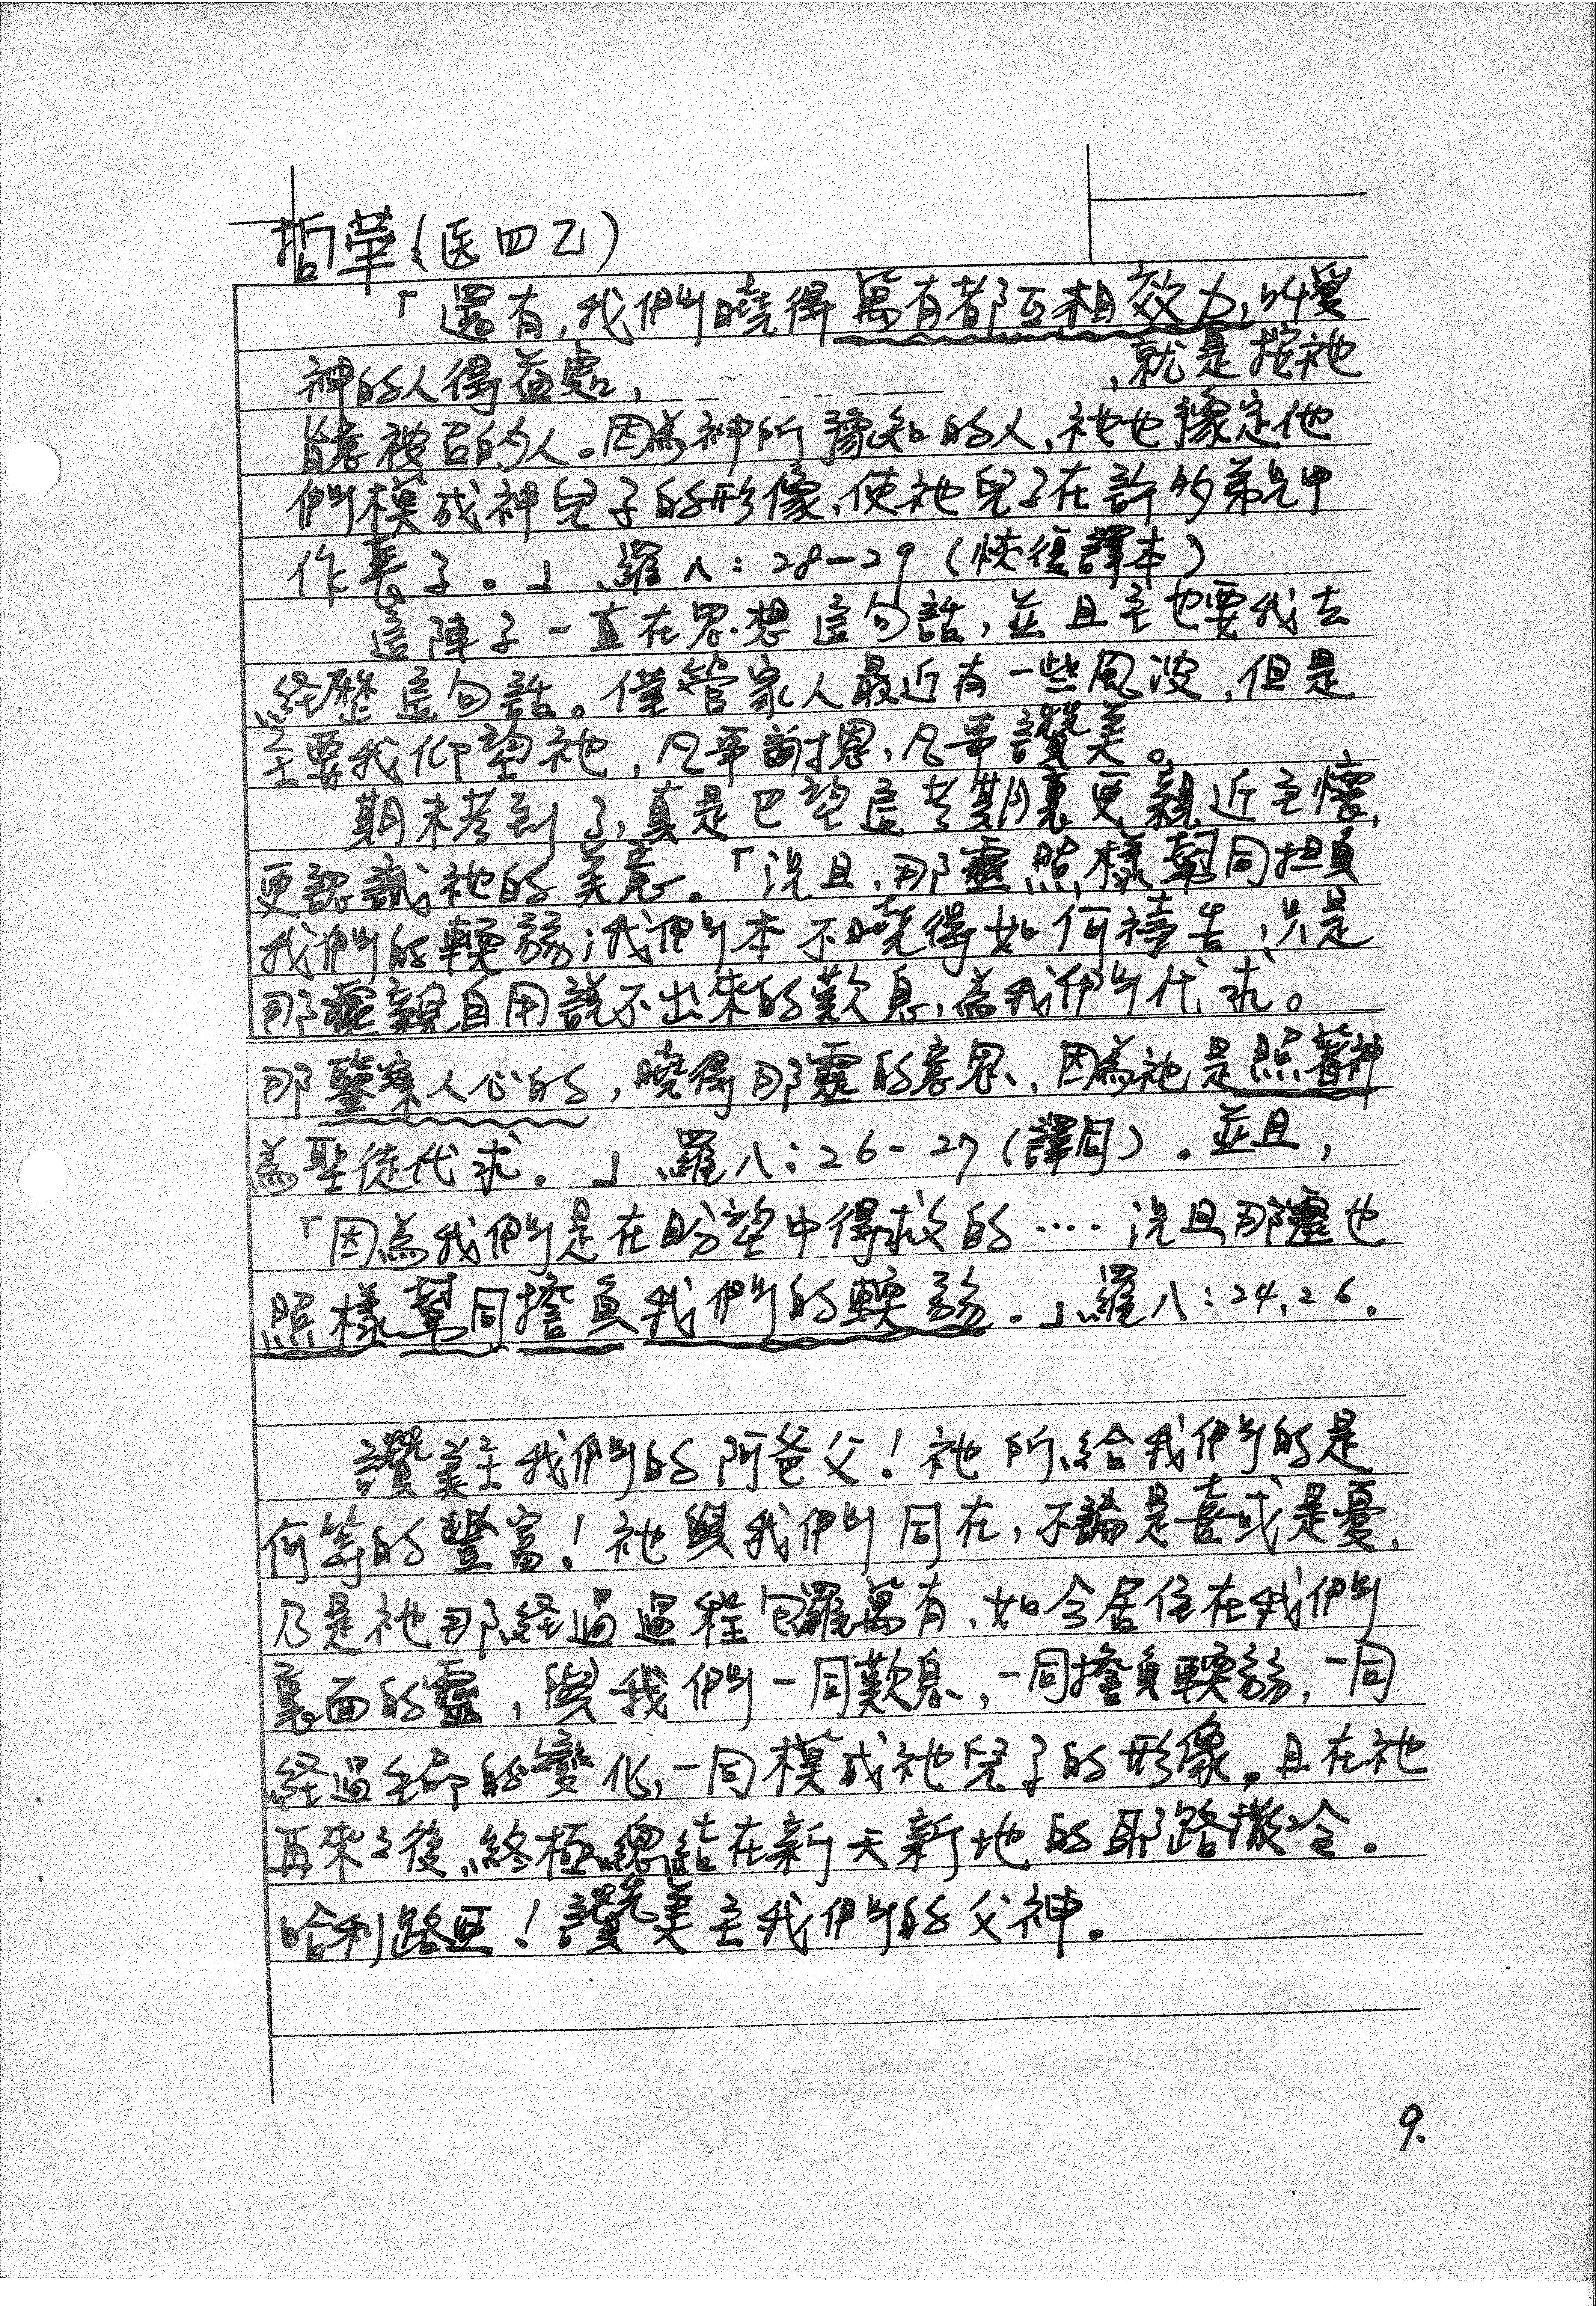 哲華(医四乙)
「還有,我們曉得萬有都互相效力,叫愛
神的人得益處,　　　　,就是按祂
旨意被召的人。因為神所豫知的人,祂也豫定他
們模成神兒子的形像,使祂兒子在許多弟兄中
作長子。」羅八:28-29(恢復譯本)
這陣子一直在思想這句話,並且主也要我去
経歷這句話。僅管家人最近有一些風波,但是
主要我仰望祂,凡事謝恩,凡事讚美。
期末考到了,真是巴望這考期裏更親近主懷,
更認識祂的美意。「況且,那靈照樣幫同担負
我們的輭弱;我們本不曉得如何禱告,只是
那靈親自用說不出來的歎息,為我們代求。
那鑒察人心的,曉得那靈的意思,因為祂是照著神
為聖徒代求。」羅八:26-27(譯同)。並且,
「因為我們是在盼望中得救的....況且那靈也
照樣幫同擔負我們的輭弱。」羅八:24,26.
讚美主我們的阿爸父!祂所給我們的是
何等的豐富!祂與我們同在,不論是喜或是憂,
乃是祂那経過過程包羅萬有,如今居住在我們
裏面的靈,與我們一同歎息,一同擔負輭弱,一同
経過的變化,一同模成祂兒子的形像。且在祂
再來之後,終極總結在新天新地的耶路撒冷。
哈利路亞!讚美主我們的父神。
9.